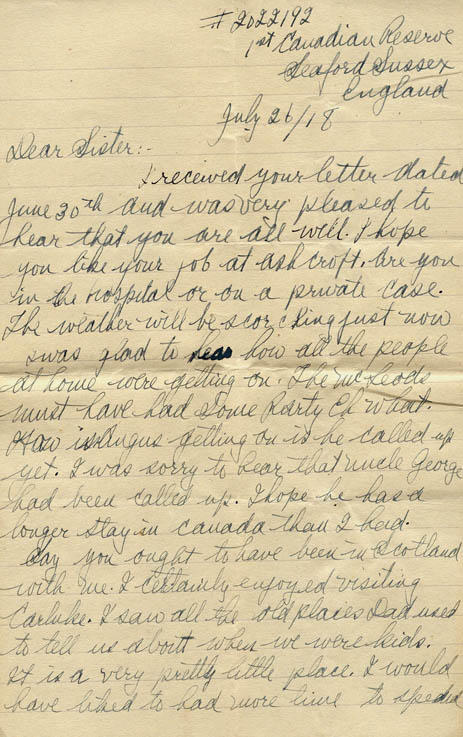 # 2022192
1st Canadian Reserve
Seaford Sussex
England
July 26/18
Dear Sister:-
I received your letter dated
June 30th and was very pleased to
hear that you are all will. I hope
you like your job at Ashcroft. Are you
in the hospital or on a private case.
The weather will be scorching just now
I was glad to hear how all the people
at home were getting on. The McLeods
must have had some Party Eh what.
How is Angus getting on is he called up
yet. I was sorry to hear that uncle George
had been called up. I hope he has a
longer stay in Canada than I had.
Say you ought to have been in Scotland
with me. I certainly enjoyed visiting
Carluke. I saw all the old places Dad used
to tell us about when we were kids.
It is a very pretty little place. I would
have liked to had more time to spend